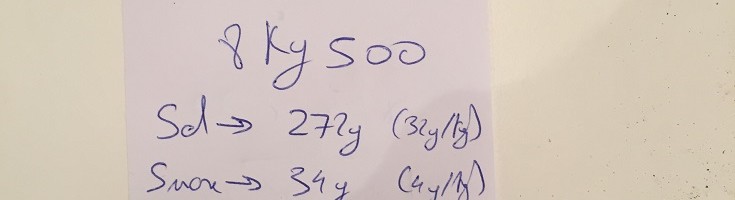 8 Kg 500
Sel → 272g (32g/kg)
Sucre → 34g (4g/kg)